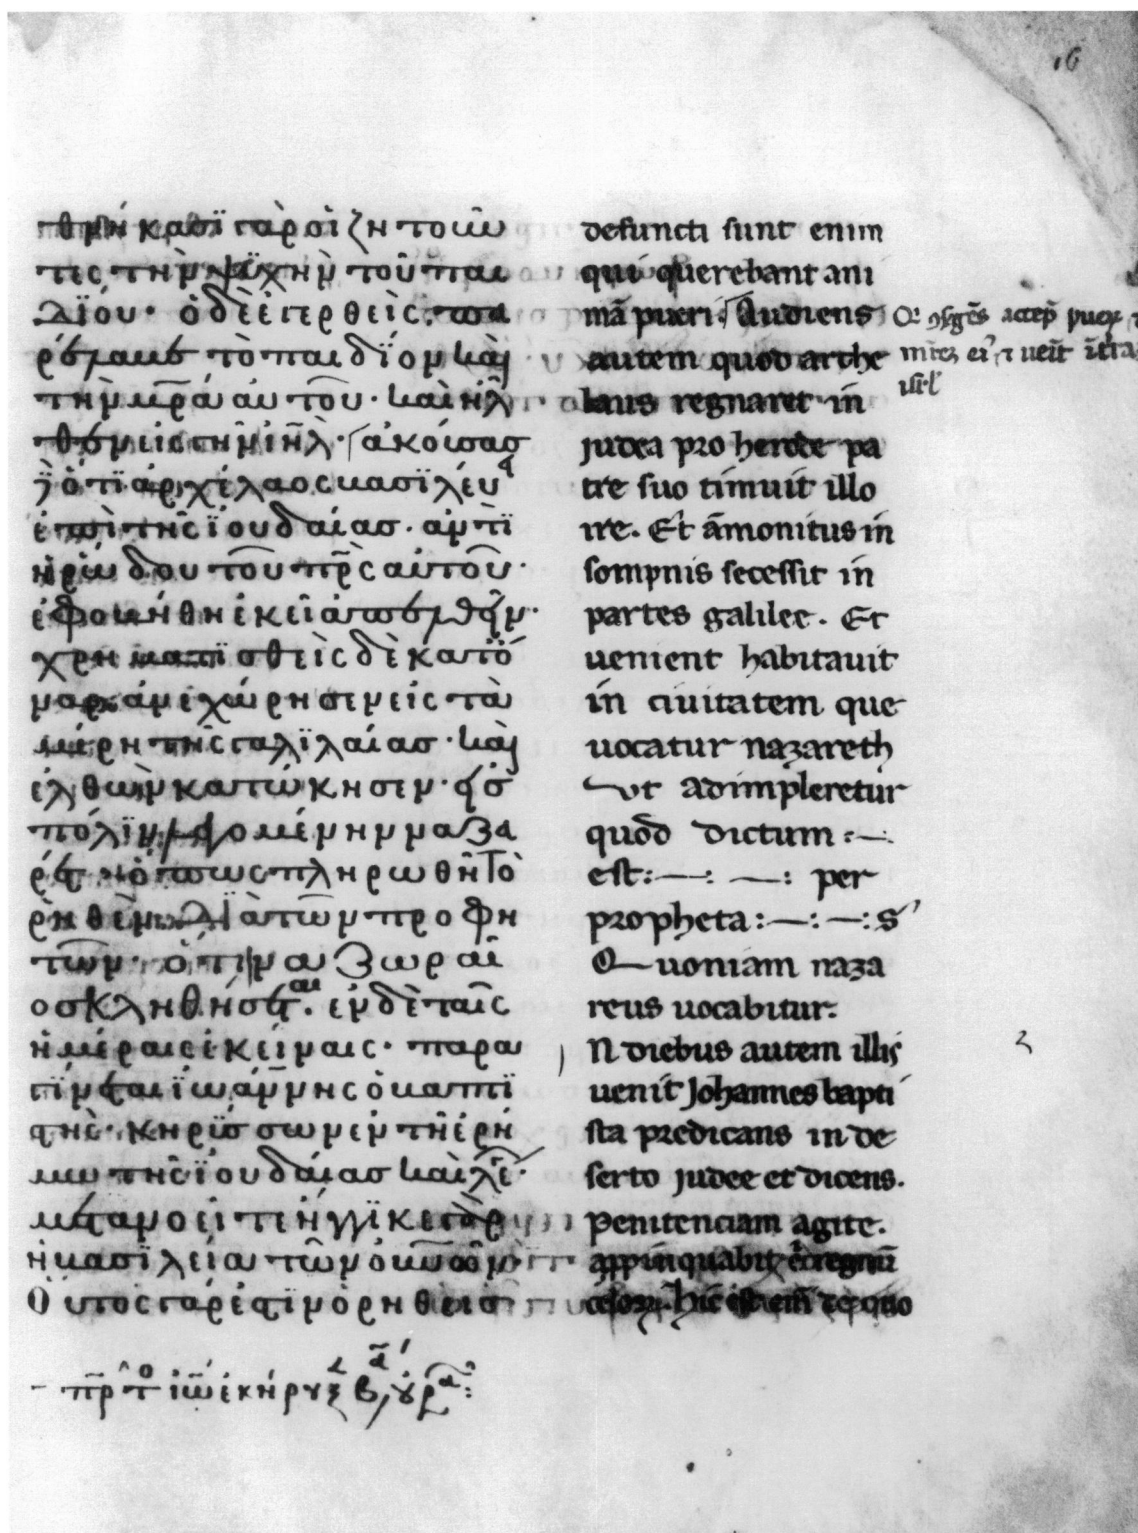 θνήκασϊ γὰρ οἱ ζητοῦν
τες τὴν ψϋχὴν τοῦ παι
δΐου· ὁ δὲ ἐγερθεὶς· πα
ρέλαβε τὸ παιδΐον καὶ
τὴν μ̅ρ̅α αὐτοῦ· καὶ ἦλ
θεν εἰς γῆν ἰη̅λ· ἀκούσας
δὲ ὅτϊ ἀρχέλαος βασϊλέυ
ἐπὶ τῆς ϊουδαίασ· ἀντὶ
ἡρώδου τοῦ π̅ρ̅ς αὐτοῦ·
ἐφοβήθη ἐκεῖ ἀπελθεῖν·
χρηματϊσθεὶς δὲ κατό
ναρ ἀνεχώρησεν εἰς τὰ
μέρη τῆς γαλϊλαίασ· καὶ
ἐλθὼν κατώκησεν· εἰσ
πόλϊν λεγομένην ναζα
ρέτ· ὅπως πληρωθῆ τὸ
ρηθὲν δϊὰ τῶν προφη
τῶν· ὅτι ναζωραῖ
οσ κληθήσεται. ἐν δὲ ταῖς
ἡμέραις ἐκείναις· παρα
γϊνεται ϊωάννης ὁ βαπτϊ
στὴς· κηρύσσων ἐν τῆ ἐρή
μω τῆς ϊουδαίασ καὶ λέγ·
μετανοεῖτε ἤγγϊκε γὰρ
ἡ βασϊλεία τῶν οὐ̅νῶν·
Οὗτος γάρ ἐστϊν ὁ ρηθεὶσ
defuncti sunt enim
qui querebant ani
mā pueri. Audiens
autem quod arche
laus regnaret in
judea pro herode pa
tre suo timuit illo
ire. Et āmonitus in
sompnis secessit in
partes galilee. Et
uenient habitauit
in ciuitatem que
uocatur nazareth
ut adimpleretur
quod dictum :—
est:—: —: per
propheta:—:—:s
Quoniam naza
reus uocabitur.
N diebus autem illis
uenit Johannes bapti
sta predicans in de
serto judee et dicens.
Penitenciam agite.
appinquabit regnū
celoꝝ. hic est em̄ de quo
16